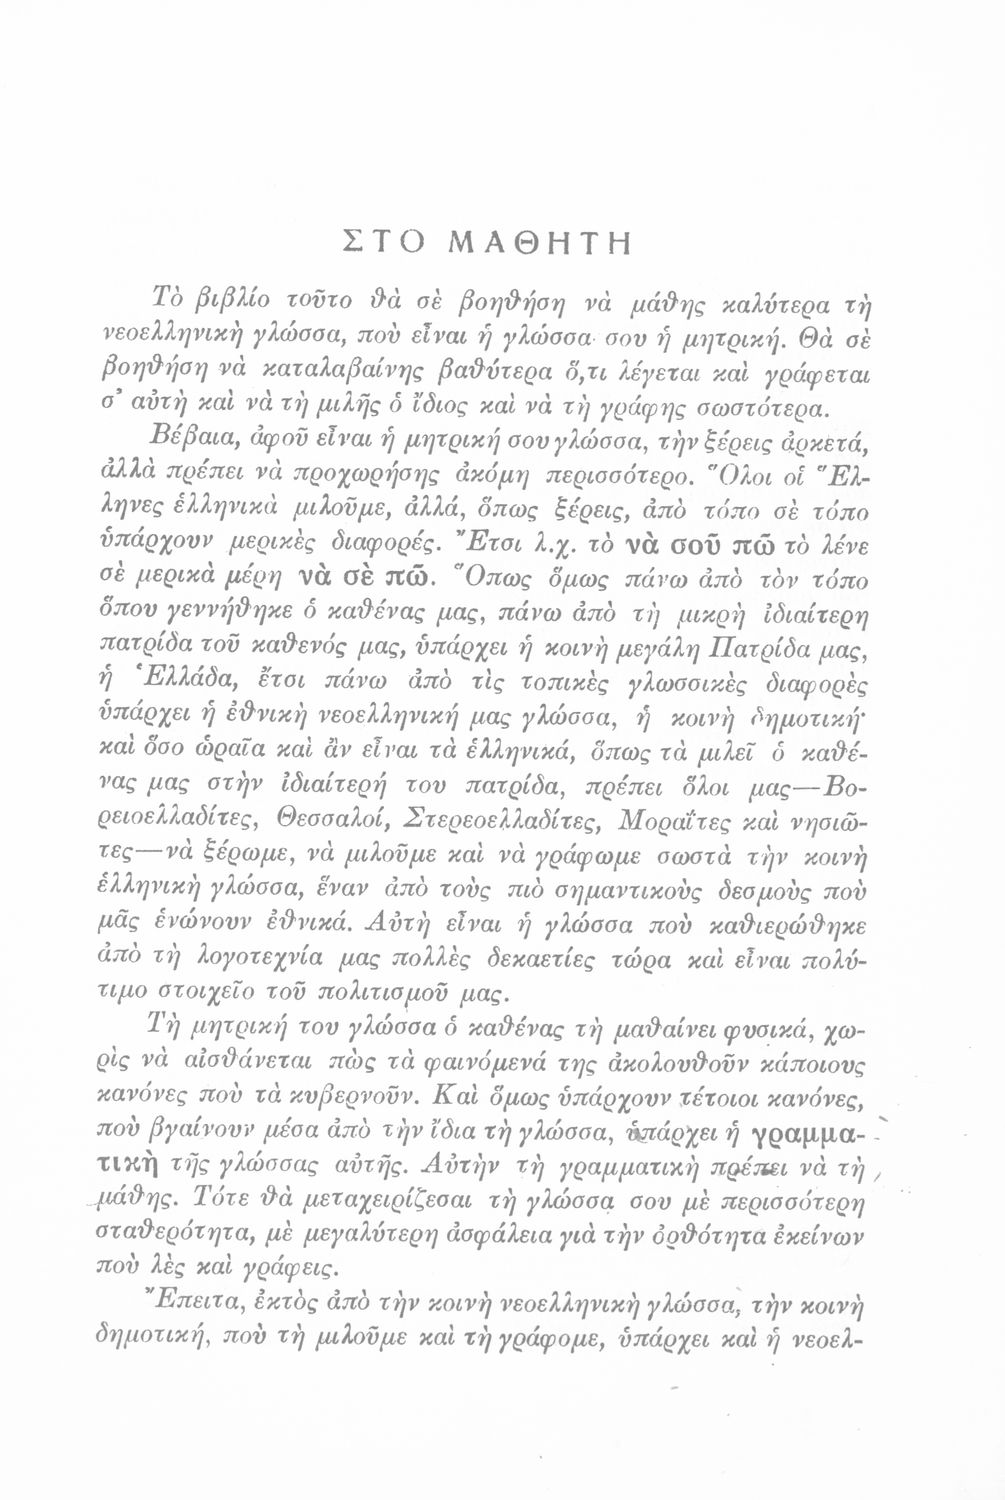 ΣΤΟ ΜΑΘΗΤΗ
Τὸ βιβλίο τοῦτο θὰ σὲ βοηθήση νὰ μάθης καλύτερα τὴ
νεοελληνικὴ γλώσσα, ποὺ εἶναι ἡ γλώσσα σου ἡ μητρική. Θὰ σὲ
βοηθήση νὰ καταλαβαίνης βαθύτερα ὅ,τι λέγεται καὶ γράφεται
σ’ αὐτὴ καὶ νὰ τὴ μιλῆς ὁ ἴδιος καὶ νὰ τὴ γράφης σωστότερα.
Βέβαια, ἀφοῦ εἶναι ἡ μητρική σου γλώσσα, τὴν ξέρεις ἀρκετά,
ἀλλὰ πρέπει νὰ προχωρήσης ἀκόμη περισσότερο. Ὅλοι οἱ Ἕλ-
ληνες ἑλληνικὰ μιλοῦμε, ἀλλά, ὅπως ξέρεις, ἀπὸ τόπο σὲ τόπο
ὑπάρχουν μερικὲς διαφορές. Ἔτσι λ.χ. τὸ νὰ σοῦ πῶ τὸ λένε
σὲ μερικὰ μέρη νὰ σὲ πῶ. Ὅπως ὅμως πάνω ἀπὸ τὸν τόπο
ὅπου γεννήθηκε ὁ καθένας μας, πάνω ἀπὸ τὴ μικρὴ ἰδιαίτερη
πατρίδα τοῦ καθενός μας, ὑπάρχει ἡ κοινὴ μεγάλη Πατρίδα μας,
ἡ Ἑλλάδα, ἔτσι πάνω ἀπὸ τὶς τοπικὲς γλωσσικὲς διαφορὲς
ὑπάρχει ἡ ἐθνικὴ νεοελληνική μας γλώσσα, ἡ κοινὴ δημοτική·
καὶ ὅσο ὡραῖα καὶ ἂν εἶναι τὰ ἑλληνικά, ὅπως τὰ μιλεῖ ὁ καθέ-
νας μας στὴν ἰδιαίτερή του πατρίδα, πρέπει ὅλοι μας—Βο-
ρειοελλαδίτες, Θεσσαλοί, Στερεοελλαδίτες, Μοραΐτες καὶ νησιῶ-
τες—νὰ ξέρωμε, νὰ μιλοῦμε καὶ νὰ γράφωμε σωστὰ τὴν κοινὴ
ἑλληνικὴ γλώσσα, ἕναν ἀπὸ τοὺς πιὸ σημαντικοὺς δεσμοὺς ποὺ
μᾶς ἑνώνουν ἐθνικά. Αὐτὴ εἶναι ἡ γλώσσα ποὺ καθιερώθηκε
ἀπὸ τὴ λογοτεχνία μας πολλὲς δεκαετίες τώρα καὶ εἶναι πολύ-
τιμο στοιχεῖο τοῦ πολιτισμοῦ μας.
Τὴ μητρική του γλώσσα ὁ καθένας τὴ μαθαίνει φυσικά, χω-
ρὶς νὰ αἰσθάνεται πὼς τὰ φαινόμενά της ἀκολουθοῦν κάποιους
κανόνες ποὺ τὰ κυβερνοῦν. Καὶ ὅμως ὑπάρχουν τέτοιοι κανόνες,
ποὺ βγαίνουν μέσα ἀπὸ τὴν ἴδια τὴ γλώσσα, ὑπάρχει ἡ γραμμα-
τικὴ τῆς γλώσσας αὐτῆς. Αὐτὴν τὴ γραμματικὴ πρέπει νὰ τὴ
μάθης. Τότε θὰ μεταχειρίζεσαι τὴ γλώσσα σου μὲ περισσότερη
σταθερότητα, μὲ μεγαλύτερη ἀσφάλεια γιὰ τὴν ὀρθότητα ἐκείνων
ποὺ λὲς καὶ γράφεις.
Ἔπειτα, ἐκτὸς ἀπὸ τὴν κοινὴ νεοελληνικὴ γλώσσα, τὴν κοινὴ
δημοτική, ποὺ τὴ μιλοῦμε καὶ τὴ γράφομε, ὑπάρχει καὶ ἡ νεοελ-